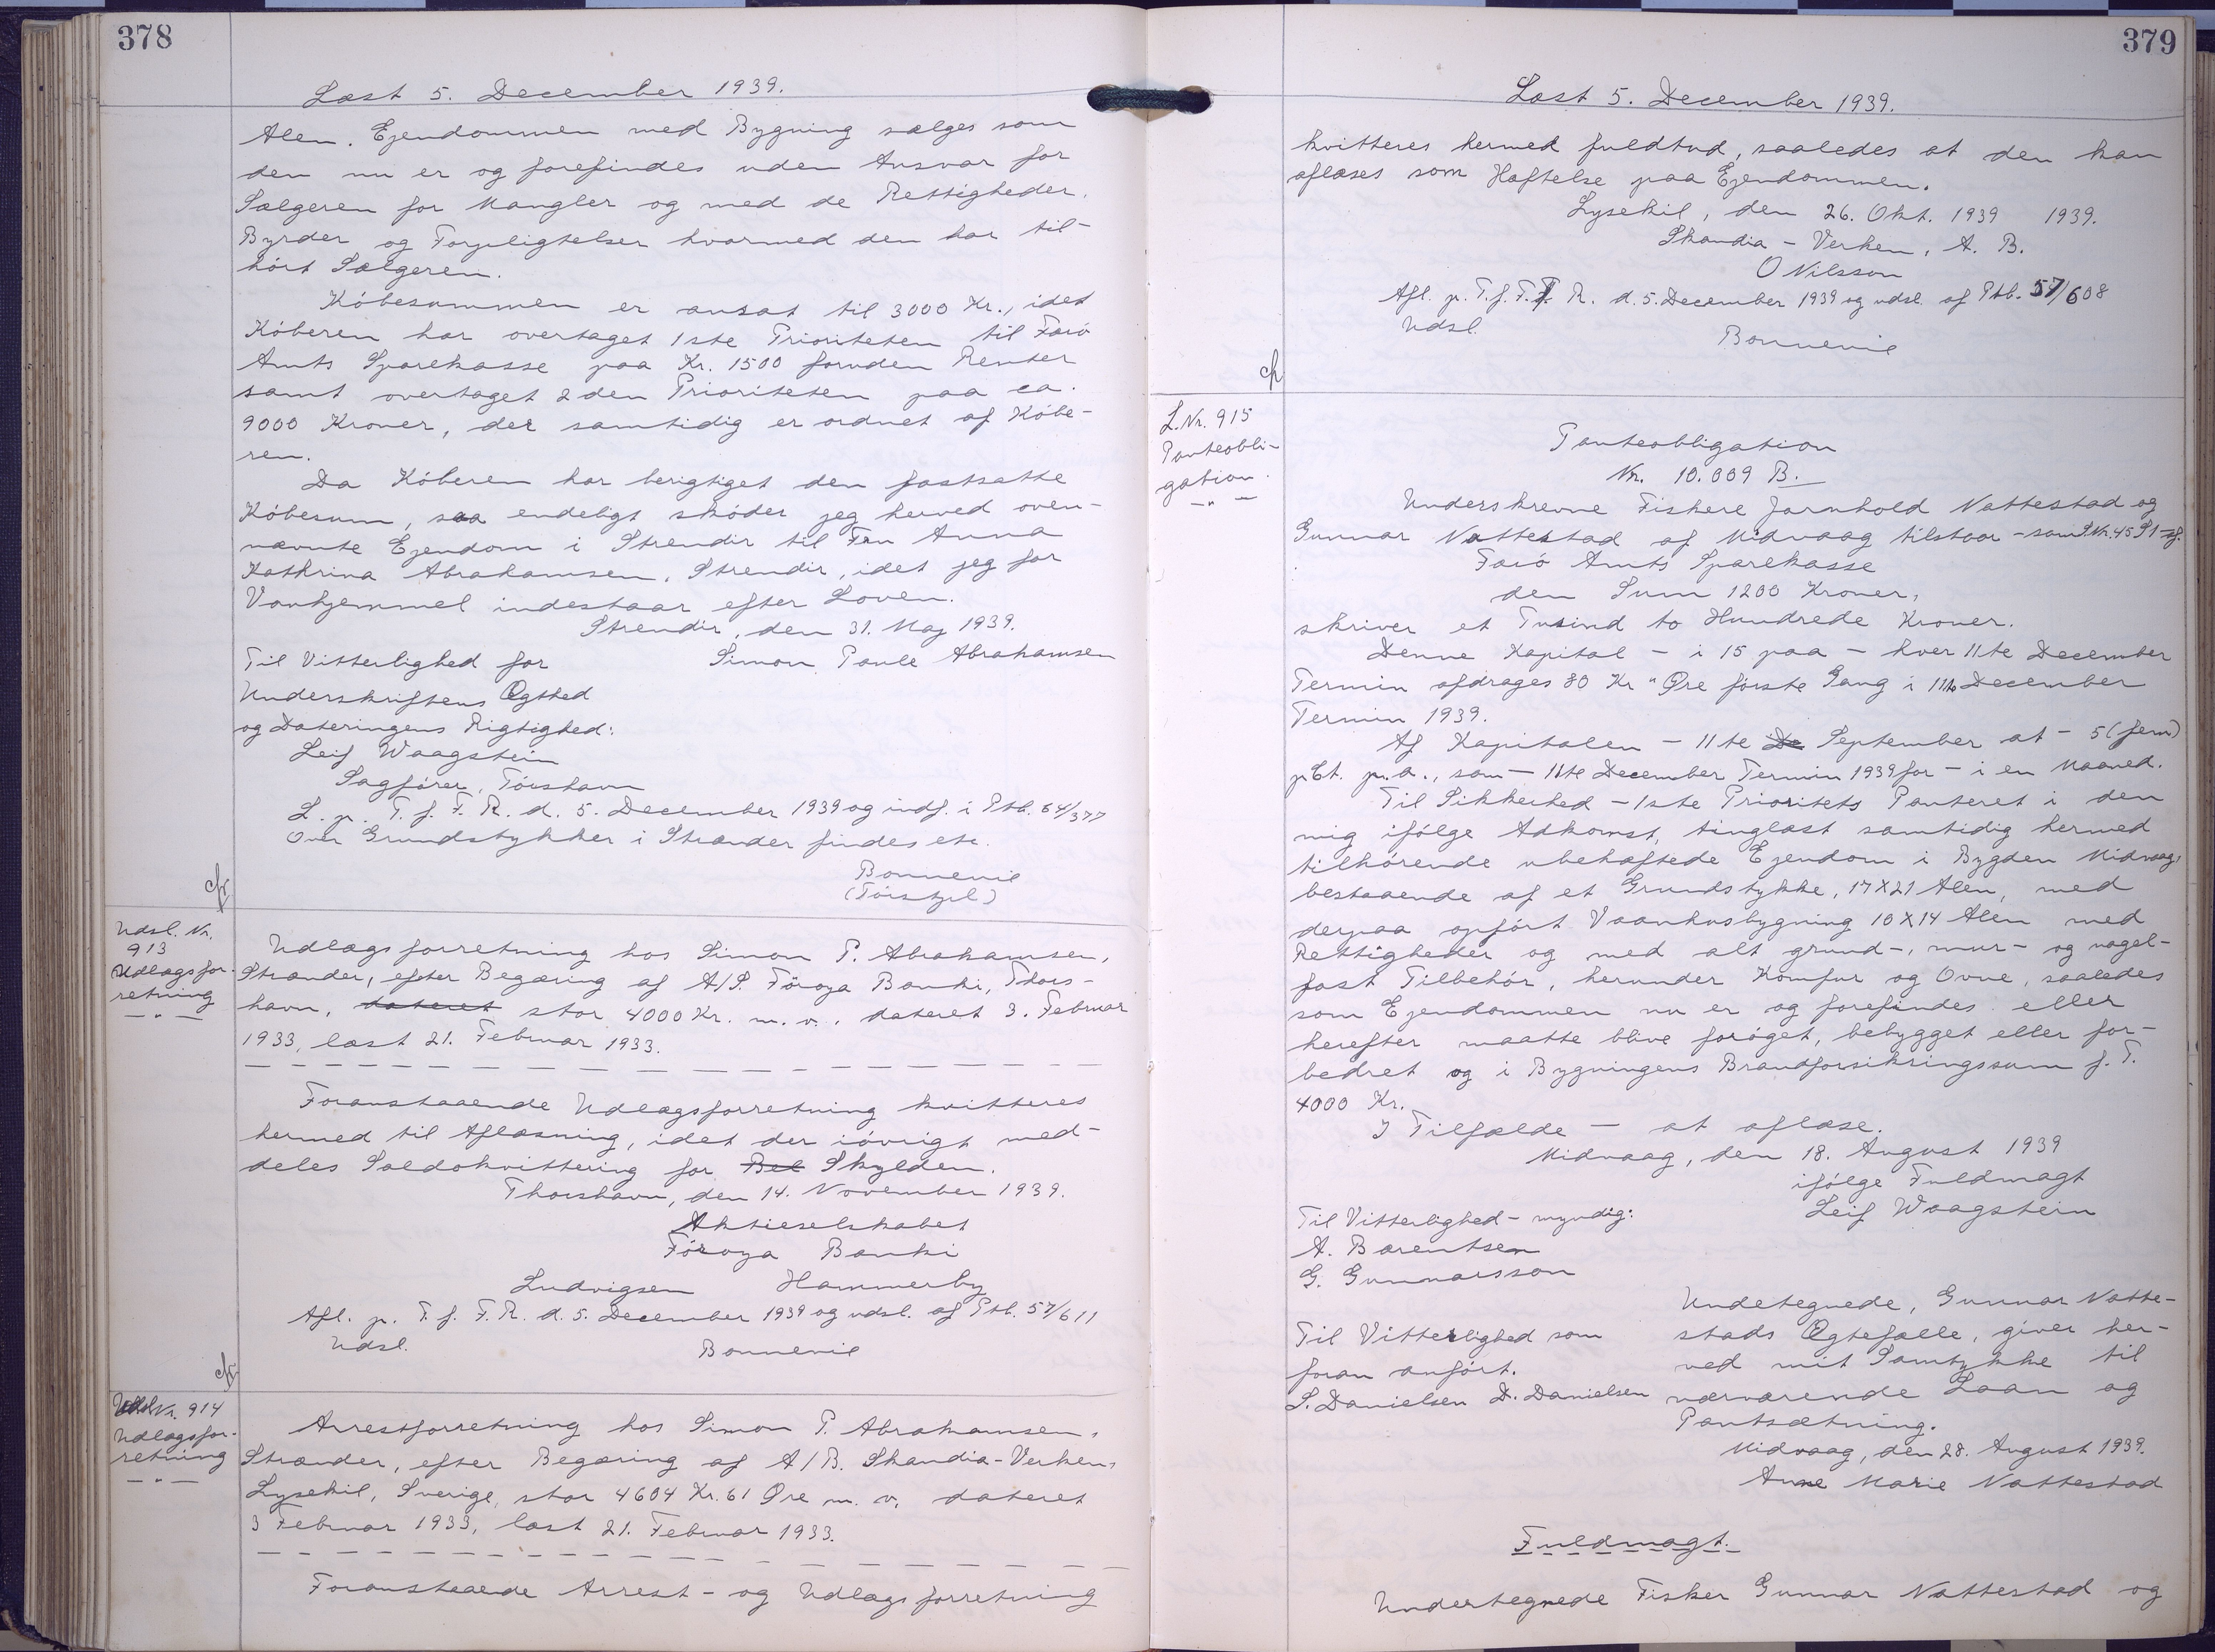 378
Læst 5. December 1939.
Alen. Ejendommen med Bygning sælges som
den nu er og forefindes uden Ansvar for
Sælgeren for Mangler og med de Rettigheder,
Byrder og Forpligtelser hvormed den har til-
hört Sælgeren.
Köbesummen er ansat til 3000 Kr., idet
Köberen har overtaget 1ste Prioriteten til Færö
Amts Sparekasse paa Kr. 1500 foruden Renter
samt overtaget 2den Prioriteten paa ca.
9000 Kroner, der samtidig er ordnet af Köbe-
ren.
Da Köberen har berigtiget den fastsatte
Köbesum, saa endeligt sköder jeg herved oven-
nævnte Ejendom i Strendir til Fru Anna
Kathrina Abrahamsen, Strendir, idet jeg for
Vanhjemmel indestaar efter Loven.
Strendir, den 31. Maj 1939.
Til Vitterlighed for Simon Paule Abrahamsen
Underskriftens Ægthed
og Dateringens Rigtighed:
Leif Waagstein
Sagförer, Tórshavn
L. p. T. f. F. R. d. 5. December 1939 og indf. i Ptb. 64/377
Over Grundstykker i Strænder findes etc.
Bonnevie
cfr.
Udsl. Nr.
913
Udlægsfor-
retning
— " —
Udlægsforretning hos Simon P. Abrahamsen,
Strænder, efter Begæring af A/S. Föroya Banki, Thors-
havn, dateret stor 4000 Kr. m. v., dateret 3. Februar
1933, læst 21. Februar 1933.
Foranstaaende Udlægsforretning kvitteres
hermed til Aflæsning, idet der iövrigt med-
deles Saldokvittering for Bel Skylden.
Thorshavn, den 14. November 1939.
Aktieselskabet
Föroya Banki
Ludvigsen Hammerby
Afl. p. T. f. F. R. d. 5. December 1939 og udsl. af Ptb. 57/611
Udsl. Bonnevie
cfr.
Nr. 914
Udlægsfor-
retning
— " —
Arrestforretning hos Simon P. Abrahamsen,
Strænder, efter Begæring af A/B. Skandia-Verken,
Lysekil, Sverige, stor 4604 Kr. 61 Øre m. v. dateret
3 Februar 1933, læst 21. Februar 1933.
Foranstaaede Arrest- og Udlægsforretning
379
Læst 5. December 1939.
kvitteres hermed fuldtud, saaledes at den kan
aflæses som Hæftelse paa Ejendommen.
Lysekil, den 26. Okt. 1939 1939.
Skandia - Verken, A. B.
O Nilsson
Afl. p. T. f. F. R. d. 5. December 1939 og udsl. af Ptb. 57/608
Udsl. Bonnevie
cfr.
L. Nr. 915
Panteobli-
gation.
— " —
Panteobligation
Nr. 10.009 B.
Underskrevne Fiskere Jarnhold Nattestad og
Gunnar Nattestad af Midvaag tilstaar - som S.Nr. 45 St - af.
Færö Amts Sparekasse
den Sum 1200 Kroner,
skriver et Tusind to Hundrede Kroner.
Denne Kapital - i 15 paa - hver 11te December
Termin afdrages 80 Kr " Øre förste Gang i 11te December
Termin 1939.
Af Kapitalen - 11te De September at - 5 (fem)
pCt. p.a., som - 11te December Termin 1939 for - i en Maaned.
Til Sikkerhed - 1ste Prioritets Panteret i den
mig ifölge Adkomst, tinglæst samtidig hermed
tilhörende ubehæftede Ejendom i Bygden Midvaag,
bestaaende af et Grundstykke, 17X21 Alen, med
derpaa opfört Vaanhusbygning 10X14 Alen med
Rettigheder og med alt grund-, mur- og nagel-
fast Tilbehör, herunder Komfur og Ovne, saaledes
som Ejendommen nu er og forefindes eller
herefter maatte blive foröget, bebygget eller for-
bedret og i Bygningens Brandforsikringssum f. T.
4000 Kr.
I Tilfælde - at aflæse.
Midvaag, den 18. August 1939
ifölge Fuldmagt
Til Vitterlighed - myndig: Leif Waagstein
A. Barentsen
G. Gunnarsson
Undetegnede, Gunnar Natte-
Til Vitterlighed som stads Ægtefælle, giver her-
foran anfört. ved mit Samtykke til
S. Danielsen D. Danielsen nærværende Laan og
Pantsætning.
Midvaag, den 28. August 1939.
Anne Marie Nattestad
Fuldmagt.
Undertegnede Fisker Gunnar Nattestad og